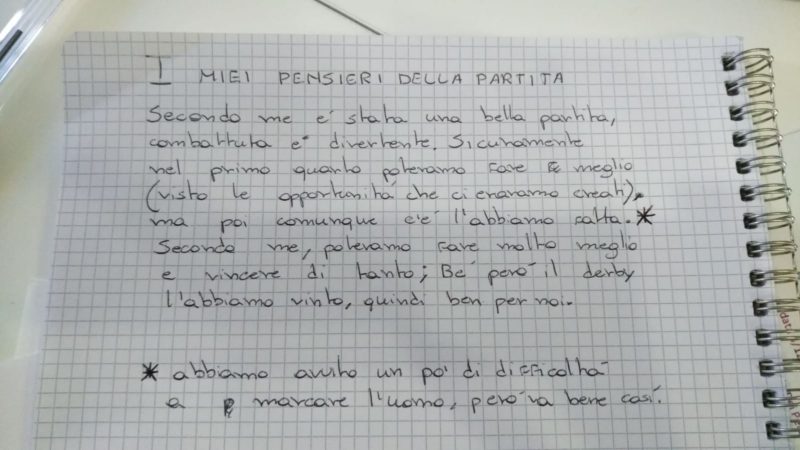 I MIEI PENSIERI DELLA PARTITA
Secondo me e' stata una bella partita,
combattuta e' divertente. Sicuramente
nel primo quarto potevamo fare meglio
(visto le opportunità che ci eravamo creati),
ma poi comunque c'é l'abbiamo fatta.*
Secondo me, potevamo fare molto meglio
e vincere di tanto; Bé però il derby
l'abbiamo vinto, quindi ben per noi.
* abbiamo avuto un po' di difficoltà
a marcare l'uomo, però va bene così.